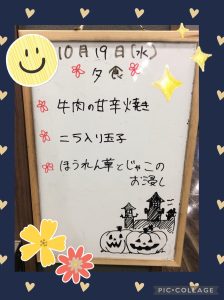 10月19日(水)
夕食
牛肉の甘辛焼き
ニラ入り玉子
ほうれん草とじゃこの
お浸し
PIC•COLLAGE